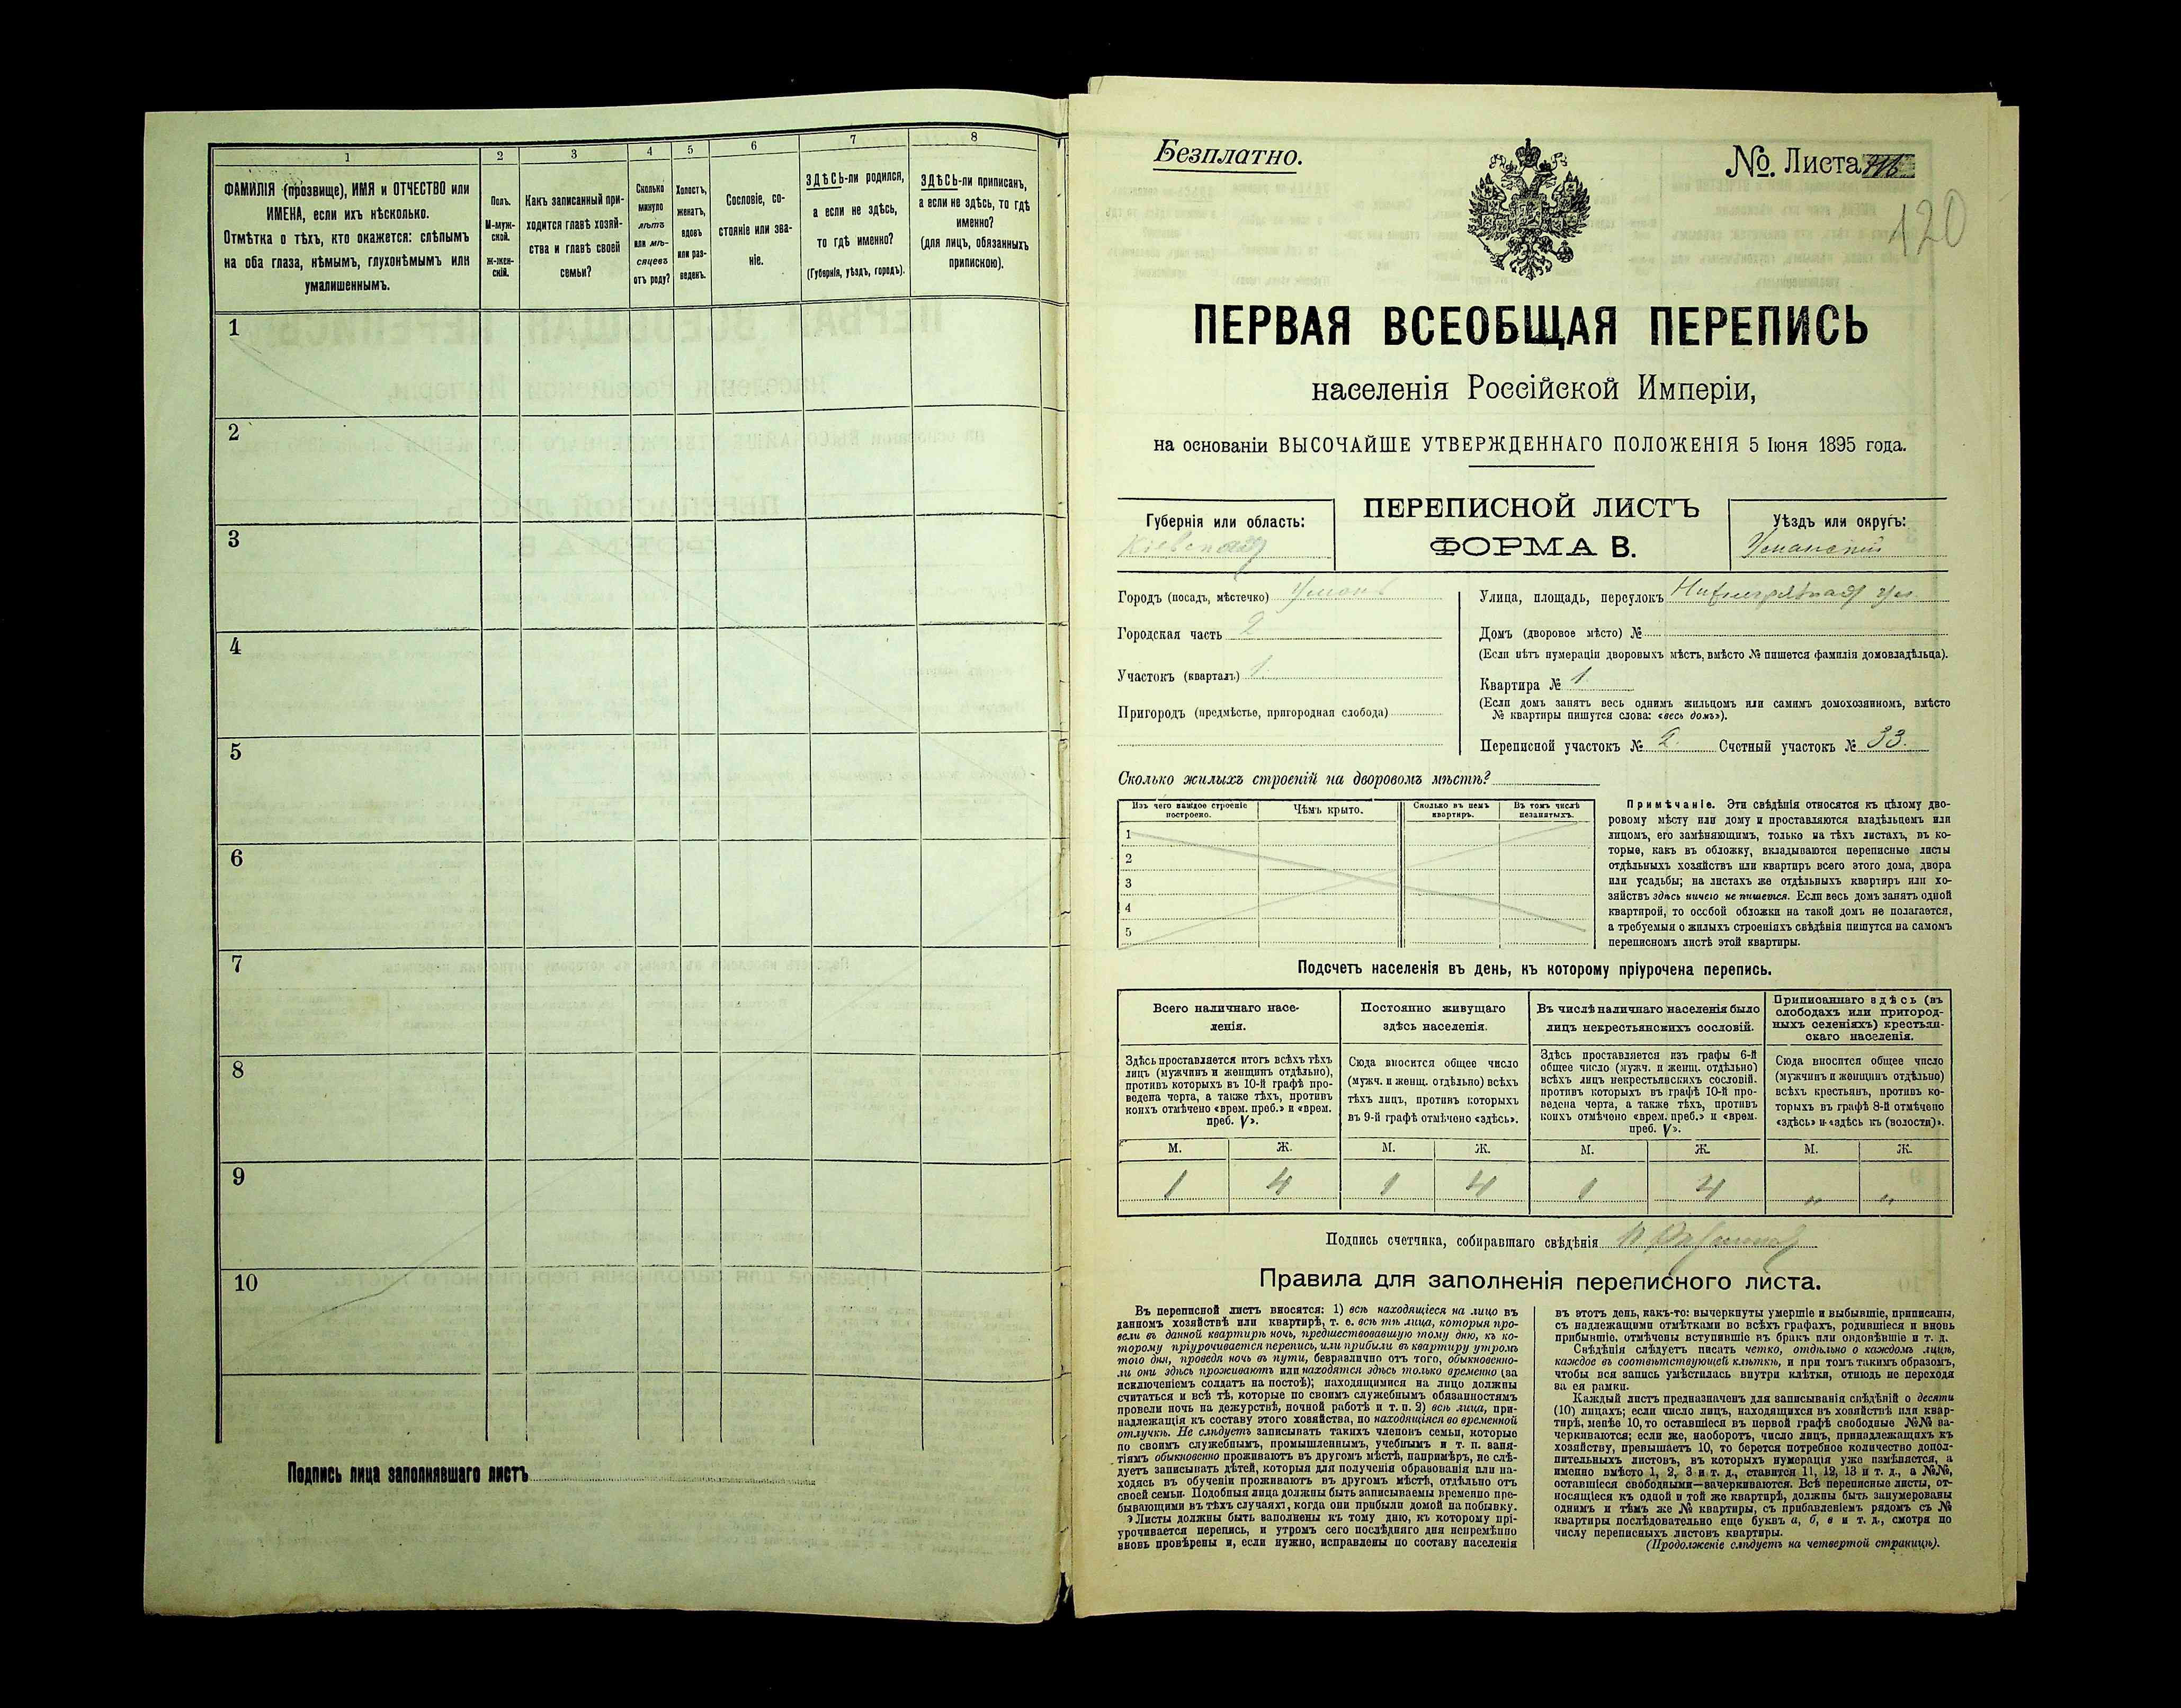 1
2
3
4
5
6
7
8
ФАМИЛІЯ (прозвище), ИМЯ и ОТЧЕСТВО или
ИМЕНА, если ихъ нѣсколько.
Отмѣтка о тѣхъ, кто окажется: слѣпымъ
на оба глаза, нѣмымъ, глухонѣмымъ или
умалишеннымъ.
Полъ.
М-муж-
ской.
Ж-жен-
скій.
Какъ записанный при-
ходится главѣ хозяй-
ства и главѣ своей
семьи?
Сколько
минуло
лѣтъ
или мѣ-
сяцевъ
отъ роду?
Холостъ,
женатъ,
вдовъ
или раз-
веденъ.
Сословіе, со-
стояніе или зва-
ніе.
ЗДѢСЬ-ли родился,
а если не здѣсь,
то гдѣ именно?
(Губернія, уѣздъ, городъ).
ЗДѢСЬ-ли приписанъ,
а если не здѣсь, то гдѣ
именно?
(для лицъ, обязанныхъ
припискою).
1
2
3
4
5
6
7
8
9
10
Подпись лица заполнявшаго листъ
Безплатно.
№. Листа
120
ПЕРВАЯ ВСЕОБЩАЯ ПЕРЕПИСЬ
населенія Россійской Имперіи,
на основаніи ВЫСОЧАЙШЕ УТВЕРЖДЕННАГО ПОЛОЖЕНІЯ 5 Іюня 1895 года.
Губернія или область:
Кіевская
ПЕРЕПИСНОЙ ЛИСТЪ
ФОРМА В.
Уѣздъ или округъ:
Уманскій
Городъ (посадъ, мѣстечко) Умань
Городская часть 2
Участокъ (кварталъ) 1.
Пригородъ (предмѣстье, пригородная слобода)
Улица, площадь, переулокъ
Домъ (дворовое мѣсто) №
(Если нѣтъ нумераціи дворовыхъ мѣстъ, вмѣсто № пишется фамилія домовладѣльца).
Квартира № 1.
(Если домъ занятъ весь однимъ жильцомъ или самимъ домохозяиномъ, вмѣсто
№ квартиры пишутся слова: «весь домъ»).
Переписной участокъ № 2. Счетный участокъ № 33.
Сколько жилыхъ строеній на дворовомъ мѣстѣ?
Изъ чего каждое строеніе
построено.
Чѣмъ крыто.
Сколько въ немъ
квартиръ.
Въ томъ числѣ
незанятыхъ.
1
2
3
4
5
Примѣчаніе. Эти свѣдѣнія относятся къ цѣлому дво-
ровому мѣсту или дому и проставляются владѣльцемъ или
лицомъ, его замѣняющимъ, только на тѣхъ листахъ, въ ко-
торые, какъ въ обложку, вкладываются переписные листы
отдѣльныхъ хозяйствъ или квартиръ всего этого дома, двора
или усадьбы; на листахъ же отдѣльныхъ квартиръ или хо-
зяйствъ здѣсь ничего не пишется. Если весь домъ занятъ одной
квартирой, то особой обложки на такой домъ не полагается,
а требуемыя о жилыхъ строеніяхъ свѣдѣнія пишутся на самомъ
переписномъ листѣ этой квартиры.
Подсчетъ населенія въ день, къ которому пріурочена перепись.
Всего наличнаго насе-
ленія.
Здѣсь проставляется итогъ всѣхъ тѣхъ
лицъ (мужчинъ и женщинъ отдѣльно),
противъ которыхъ въ 10-й графѣ про-
ведена черта, а также тѣхъ, противъ
коихъ отмѣчено «врем. преб.» и «врем.
преб. V».
Постоянно живущаго
здѣсь населенія.
Сюда вносится общее число
(мужч. и женщ. отдѣльно) всѣхъ
тѣхъ лицъ, противъ которыхъ
въ 9-й графѣ отмѣчено «здѣсь».
Въ числѣ наличнаго населенія было
лицъ некрестьянскихъ сословій.
Здѣсь проставляется изъ графы 6-й
общее число (мужч. и женщ. отдѣльно)
всѣхъ лицъ некрестьянскихъ сословій.
противъ которыхъ въ графѣ 10-й про-
ведена черта, а также тѣхъ, противъ
коихъ отмѣчено «врем. преб.» и «врем.
преб. V».
Приписаннаго здѣсь (въ
слободахъ или пригород-
ныхъ селеніяхъ) крестьян-
скаго населенія.
Сюда вносится общее число
(мужчинъ и женщинъ отдѣльно)
всѣхъ крестьянъ, противъ ко-
торыхъ въ графѣ 8-й отмѣчено
«здѣсь» и «здѣсь къ (волости)».
М. Ж. М. Ж. М. Ж. М. Ж.
1 4 1 4 1 4 " "
Подпись счетчика, собиравшаго свѣдѣнія
Правила для заполненія переписного листа.
Въ переписной листъ вносятся: 1) всѣ находящіеся на лицо въ
данномъ хозяйствѣ или квартирѣ, т. е. всѣ тѣ лица, которыя про-
вели въ данной квартирѣ ночь, предшествовавшую тому дню, къ ко-
торому пріурочивается перепись, или прибыли въ квартиру утромъ
того дня, проведя ночь въ пути, безразлично отъ того, обыкновенно-
ли они здѣсь проживаютъ или находятся здѣсь только временно (за
исключеніемъ солдатъ на постоѣ); находящимися на лицо должны
считаться и всѣ тѣ, которые по своимъ служебнымъ обязанностямъ
провели ночь на дежурствѣ, ночной работѣ и т. п. 2) всѣ лица, при-
надлежащія къ составу этого хозяйства, но находящіяся во временной
отлучкѣ. Не слѣдуетъ записывать такихъ членовъ семьи, которые
по своимъ служебнымъ, промышленнымъ, учебнымъ и т. п. заня-
тіямъ обыкновенно проживаютъ въ другомъ мѣстѣ, напримѣръ, не слѣ-
дуетъ записывать дѣтей, которыя для полученія образованія или на-
ходясь въ обученіи проживаютъ въ другомъ мѣстѣ, отдѣльно отъ
своей семьи. Подобныя лица должны быть записываемы временно пре-
бывающими въ тѣхъ случаяхъ, когда они прибыли домой на побывку.
Листы должны быть заполнены къ тому дню, къ которому прі-
урочивается перепись, и утромъ сего послѣдняго дня непремѣнно
вновь провѣрены и, если нужно, исправлены по составу населенія
въ этотъ день, какъ-то: вычеркнуты умершіе и выбывшіе, приписаны,
съ надлежащими отмѣтками во всѣхъ графахъ, родившіеся и вновь
прибывшіе, отмѣчены вступившіе въ бракъ или овдовѣвшіе и т. д.
Свѣдѣнія слѣдуетъ писать четко, отдѣльно о каждомъ лицѣ,
каждое въ соотвѣтствующей клѣткѣ, и при томъ такимъ образомъ,
чтобы вся запись умѣстилась внутри клѣтки, отнюдь не переходя
за ея рамки.
Каждый листъ предназначенъ для записыванія свѣдѣній о десяти
(10) лицахъ; если число лицъ, находящихся въ хозяйствѣ или квар-
тирѣ, менѣе 10, то оставшіеся въ первой графѣ свободные №№ за-
черкиваются; если же, наоборотъ, число лицъ, принадлежащихъ къ
хозяйству, превышаетъ 10, то берется потребное количество допол-
нительныхъ листовъ, въ которыхъ нумерація уже измѣняется, а
именно вмѣсто 1, 2, 3 и т. д., ставится 11, 12, 13 и т. д., а №№,
оставшіеся свободными—зачеркиваются. Всѣ переписные листы, от-
носящіеся къ одной и той же квартирѣ, должны быть занумерованы
однимъ и тѣмъ же № квартиры, съ прибавленіемъ рядомъ съ №
квартиры послѣдовательно еще буквъ а, б, в и т. д., смотря по
числу переписныхъ листовъ квартиры.
(Продолженіе слѣдуетъ на четвертой страницѣ).